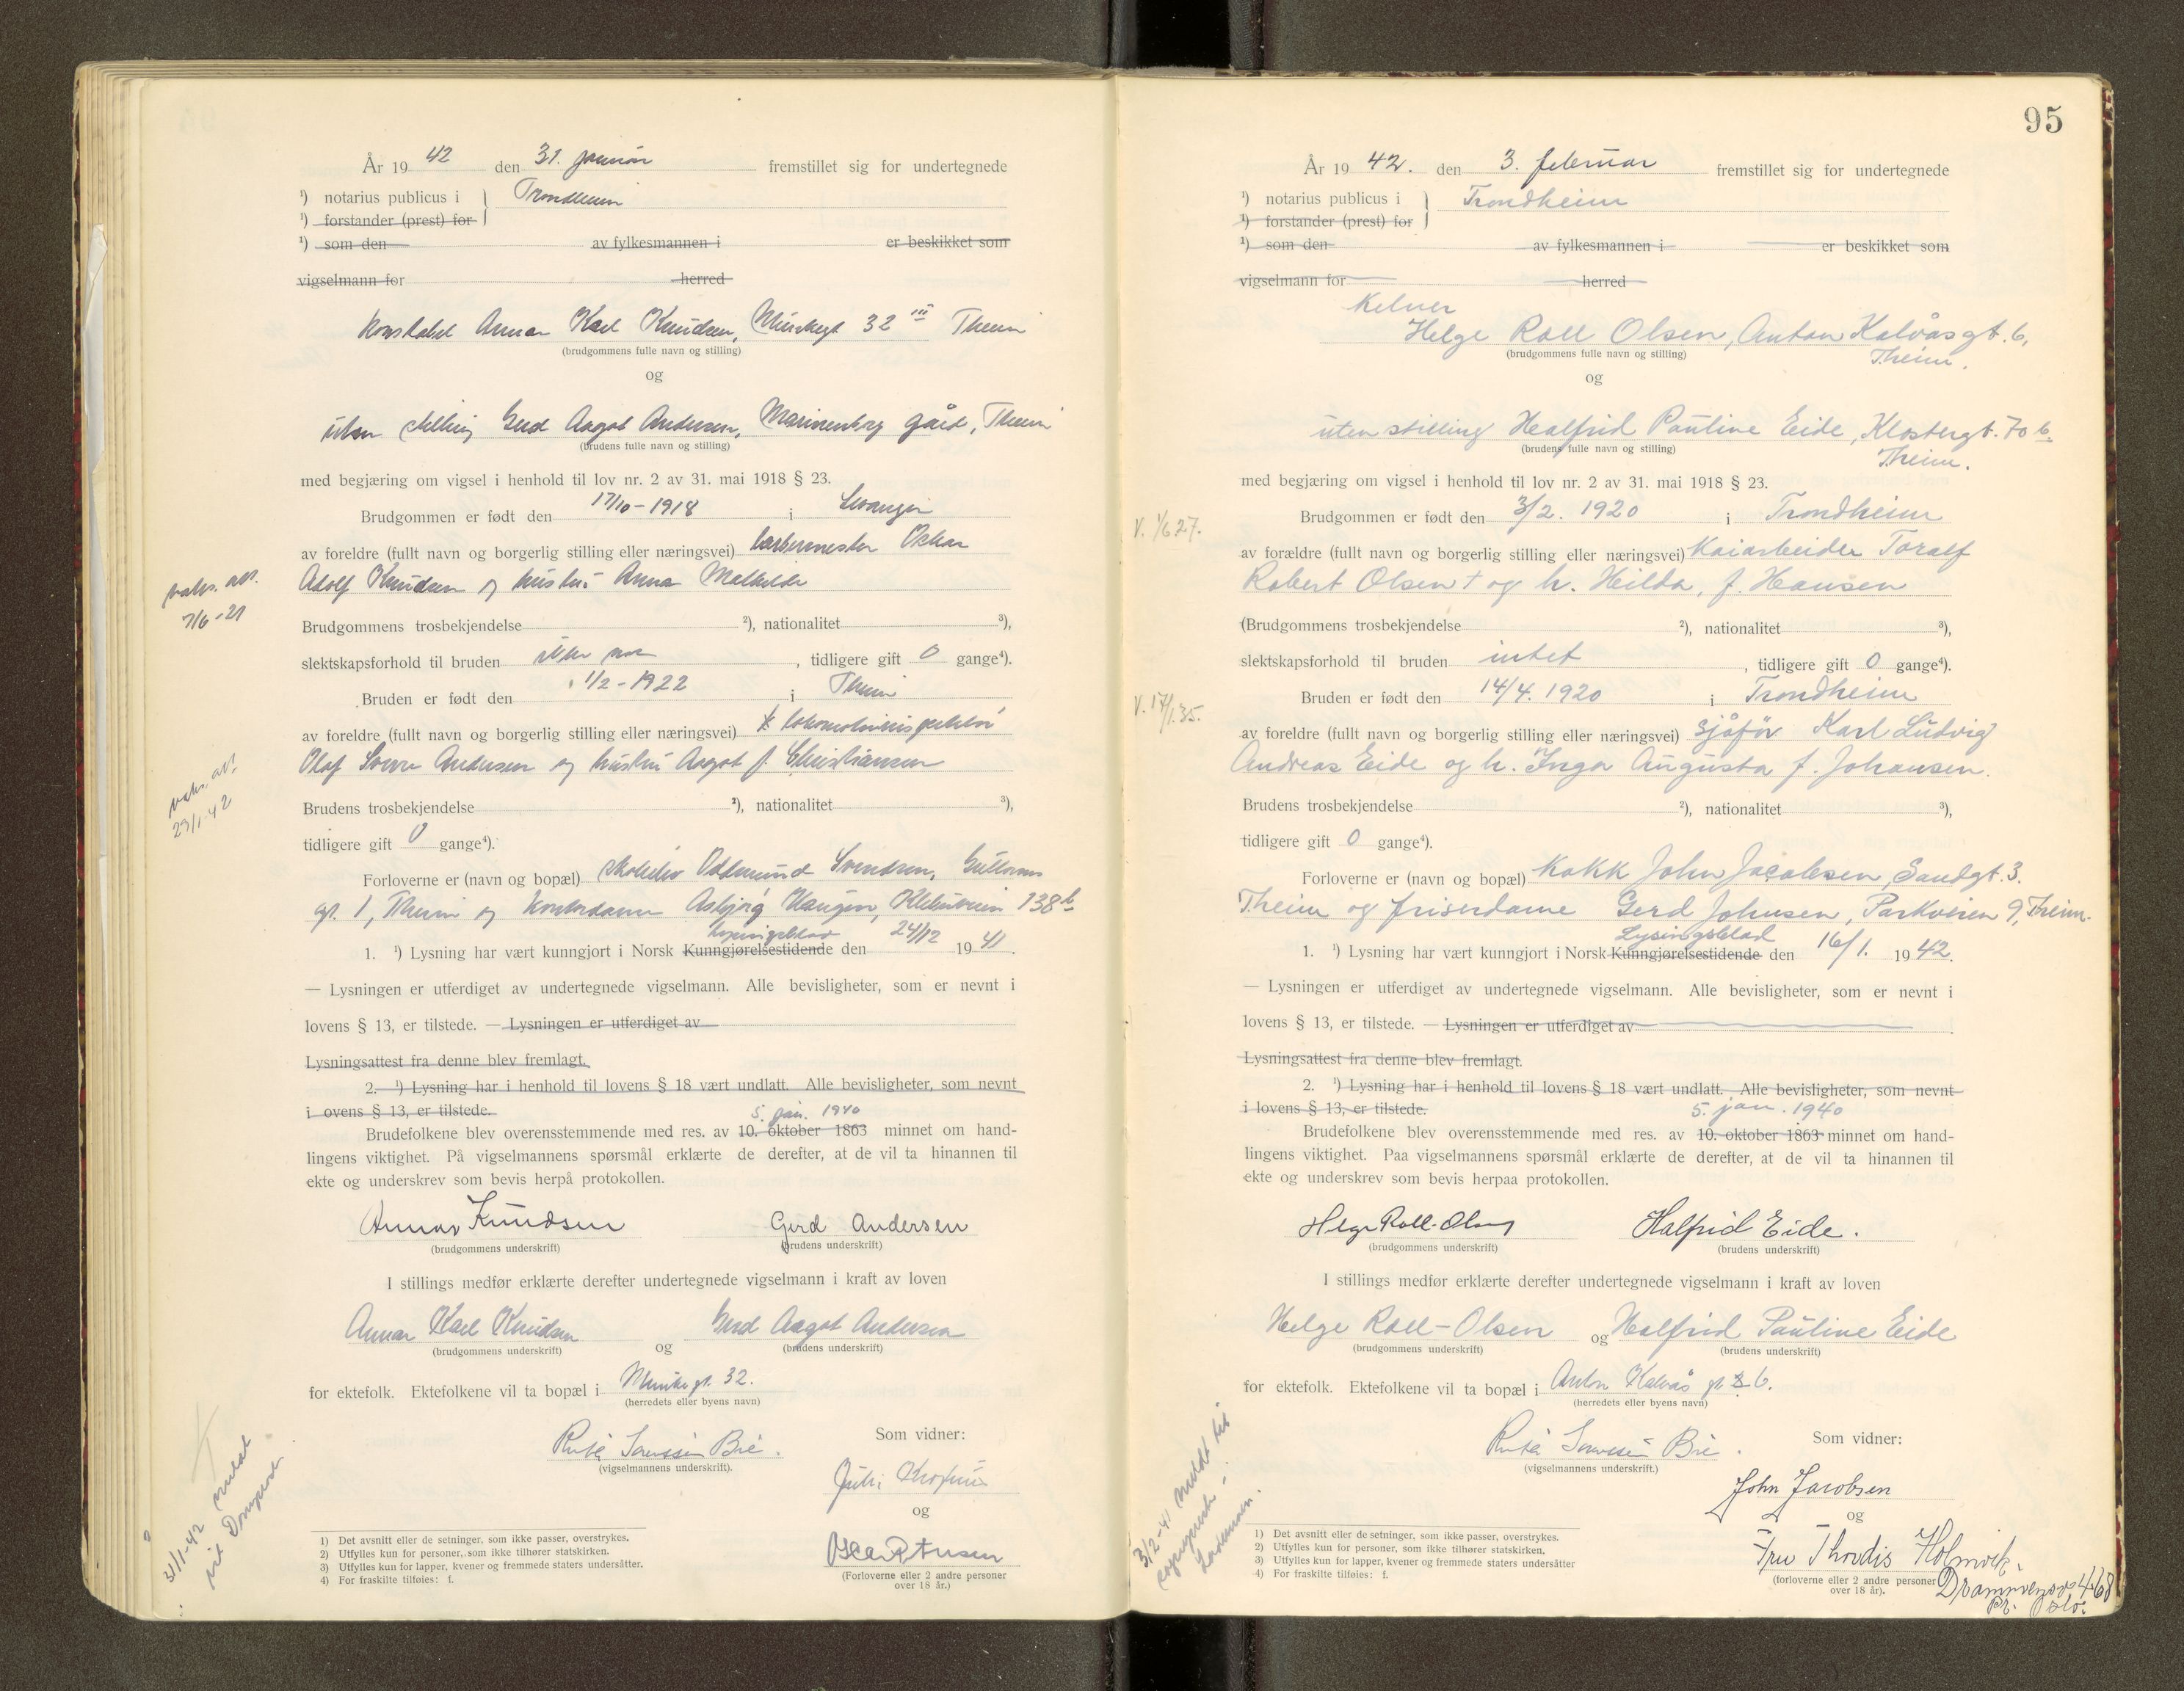 År 19 42 den 31. januar fremstillet sig for undertegnede
¹) notarius publicus i } Trondheim
¹) forstander (prest) for
¹) som den av fylkesmannen i er beskikket som
vigselmann for herred
konstabel Annar Karl Knudsen, Munkegt 32 III Theim
(brudgommens fulle navn og stilling)
og
uten stilling Gerd Aagot Andersen, Marienborg gård, Theim
(brudens fulle navn og stilling)
med begjæring om vigsel i henhold til lov nr. 2 av 31. mai 1918 § 23.
Brudgommen er født den 17/10 - 1918 i Levanger
av foreldre (fullt navn og borgerlig stilling eller næringsvei) barbermester Oskar
Adolf Knudsen og hustru Anna Mathilde
vaks. att.
7/6 - 21
Brudgommens trosbekjendelse ²), nationalitet ³),
slektskapsforhold til bruden , tidligere gift 0 gange⁴).
Bruden er født den 1/2 - 1922 i Theim
av foreldre (fullt navn og borgerlig stilling eller næringsvei) lokomotivinspektør
Olaf Sverre Andersen og hustru Aagot f. Christiansen
vaks. att.
29/1-42
Brudens trosbekjendelse ²), nationalitet ³),
tidligere gift 0 gange⁴).
Forloverne er (navn og bopæl) Oddmund Svendsen, Guttorms
gt. 1, Theim og kontordame Asbjørg Haugen, Klæbuveien 138 b
Lysingsblad
1. ¹) Lysning har vært kunngjort i Norsk Kunngjørelsestidende den 24/12 19 41.
— Lysningen er utferdiget av undertegnede vigselmann. Alle bevisligheter, som er nevnt i
lovens § 13, er tilstede. — Lysningen er utferdiget av
Lysningsattest fra denne blev fremlagt.
2. ¹) Lysning har i henhold til lovens § 18 vært undlatt. Alle bevisligheter, som nevnt
i ovens § 13, er tilstede.
5. jan. 1940
Brudefolkene blev overensstemmende med res. av 10. oktober 1863 minnet om hand-
lingens viktighet. På vigselmannens spørsmål erklærte de derefter, at de vil ta hinannen til
ekte og underskrev som bevis herpå protokollen.
Annar Knudsen Gerd Andersen
(brudgommens underskrift) (brudens underskrift)
I stillings medfør erklærte derefter undertegnede vigselmann i kraft av loven
Annar Karl Knudsen og Gerd Aagot Andersen
(brudgommens underskrift) (brudens underskrift)
for ektefolk. Ektefolkene vil ta bopæl i Munkegt. 32.
(herredets eller byens navn)
Som vidner:
(vigselmannens underskrift).
og
(Forloverne eller 2 andre personer
over 18 år.)
31/1-42 meldt
1) Det avsnitt eller de setninger, som ikke passer, overstrykes.
2) Utfylles kun for personer, som ikke tilhører statskirken.
3) Utfylles kun for lapper, kvener og fremmede staters undersåtter.
4) For fraskilte tilføies: f.
95
År 19 42. den 3. februar fremstillet sig for undertegnede
¹) notarius publicus i } Trondheim
¹) forstander (prest) for
¹) som den av fylkesmannen i er beskikket som
vigselmann for herred
Kelner
Helge Roll Olsen, Anton Kalvåsgt. 6,
Theim.
(brudgommens fulle navn og stilling)
og
uten stilling Halfrid Pauline Eide, Klostergt. 70 b.
Theim.
(brudens fulle navn og stilling)
med begjæring om vigsel i henhold til lov nr. 2 av 31. mai 1918 § 23.
Brudgommen er født den 3/2. 1920 i Trondheim
V. 1/6 27.
av forældre (fullt navn og borgerlig stilling eller næringsvei) Kaiarbeider Toralf
Robert Olsen † og h. Hilda, f. Hansen
(Brudgommens trosbekjendelse ²), nationalitet ³),
slektskapsforhold til bruden intet , tidligere gift 0 gange⁴).
Bruden er født den 14/4. 1920 i Trondheim
V. 17/1.35.
av foreldre (fullt navn og borgerlig stilling eller næringsvei) sjåfør Karl Ludvig
Andreas Eide og h. Inga Augusta f. Johansen.
Brudens trosbekjendelse ²), nationalitet ³),
tidligere gift 0 gange⁴).
Forloverne er (navn og bopæl) Kokk John Jacobsen, Sandgt. 3.
Theim og friserdame Gerd Johnsen, Parkveien 9, Theim.
Lysingsblad
1. ¹) Lysning har vært kunngjort i Norsk Kunngjørelsestidende den 16/1. 19 42.
— Lysningen er utferdiget av undertegnede vigselmann. Alle bevisligheter, som er nevnt i
lovens § 13, er tilstede. — Lysningen er utferdiget av
Lysningsattest fra denne blev fremlagt.
2. ¹) Lysning har i henhold til lovens § 18 vært undlatt. Alle bevisligheter, som nevnt
i lovens § 13, er tilstede.
5. jan. 1940
Brudefolkene blev overensstemmende med res. av 10. oktober 1863 minnet om hand-
lingens viktighet. Paa vigselmannens spørsmål erklærte de derefter, at de vil ta hinannen til
ekte og underskrev som bevis herpaa protokollen.
Helge Roll-Olsen Halfrid Eide.
(brudgommens underskrift) (brudens underskrift)
I stillings medfør erklærte derefter undertegnede vigselmann i kraft av loven
Helge Roll-Olsen og Halfrid Pauline Eide
(brudgommens underskrift) (brudens underskrift)
for ektefolk. Ektefolkene vil ta bopæl i Anton Kalvås gt. 6.
(herredets eller byens navn)
Som vidner:
(vigselmannens underskrift.)
John Jacobsen
og
Fru Thordis Holmvik
Drammensvn 468
pr. Oslo.
(forloverne eller 2 andre personer
over 18 år).
3/2-41 meldt til
sogneprest i
Lademoen.
1) Det avsnitt eller de setninger, som ikke passer, overstrykes.
2) Utfylles kun for personer, som ikke tilhører statskirken.
3) Utfylles kun for lapper, kvener og fremmede staters undersåtter
4) For fraskilte tilføies: f.